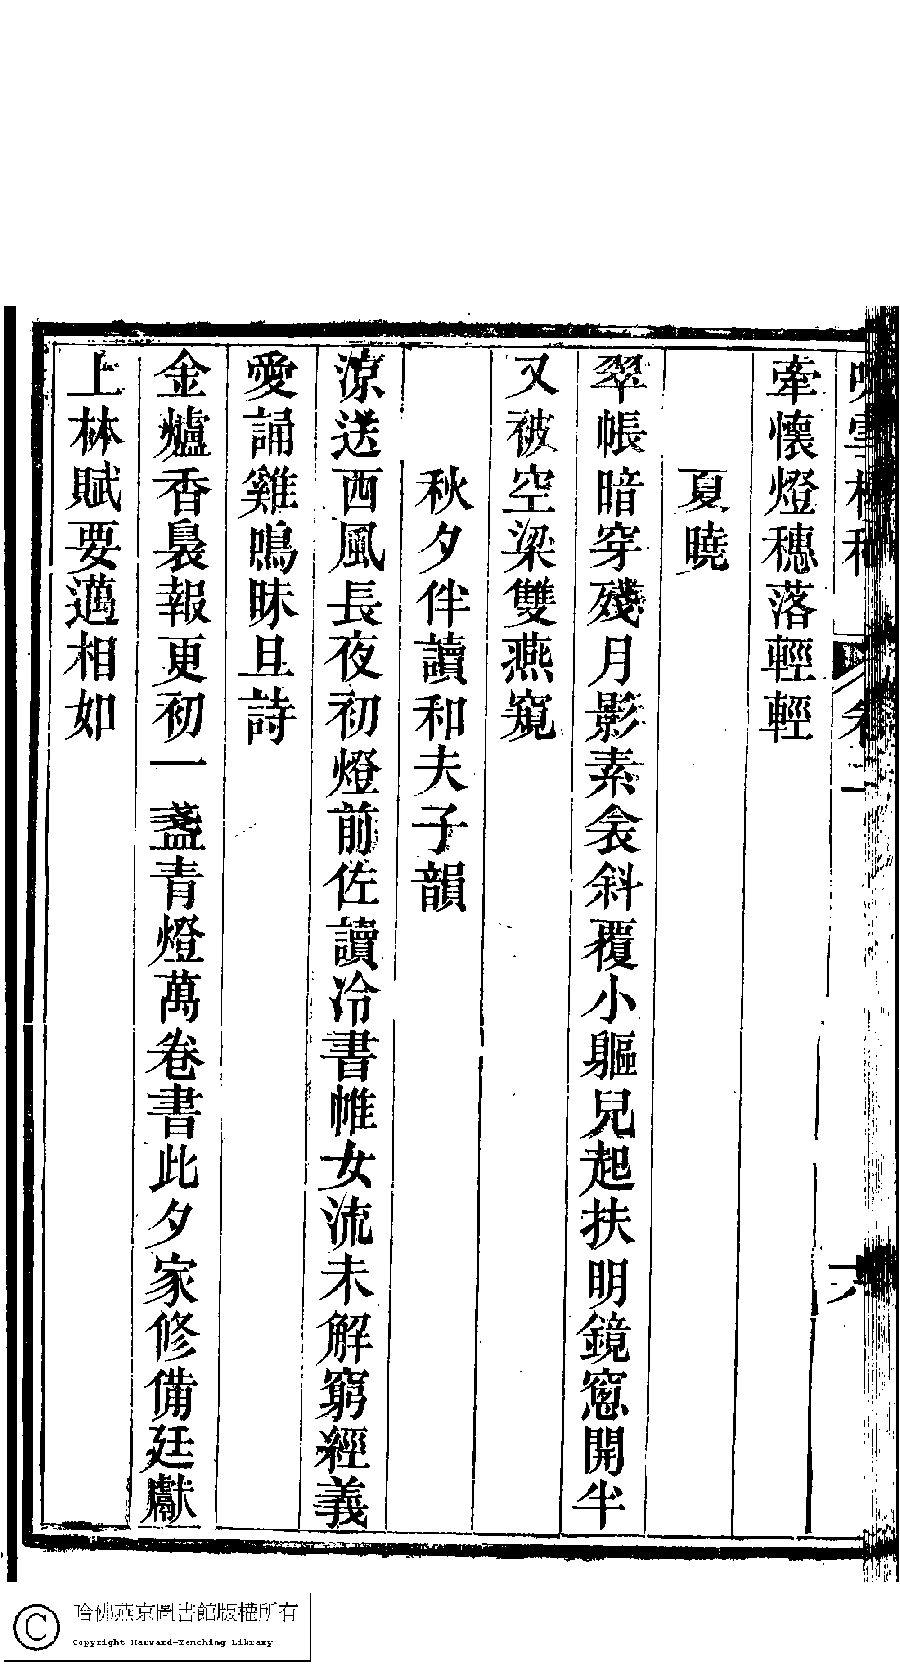 牽懷燈穗落輕輕
夏曉
翠帳暗穿殘月影素衾斜覆小軀兒起扶明鏡窻開半
又被空梁雙燕窺
秋夕伴讀和夫子韻
涼送西風長夜初燈前佐讀冷書帷女流未解窮經義
愛誦雞鳴昧旦詩
金爐香裊報更初一盞青燈萬卷書此夕家修備廷獻
上林賦要邁相如
哈佛燕京圖書館版權所有
Copyright Harvard-Yenching Library